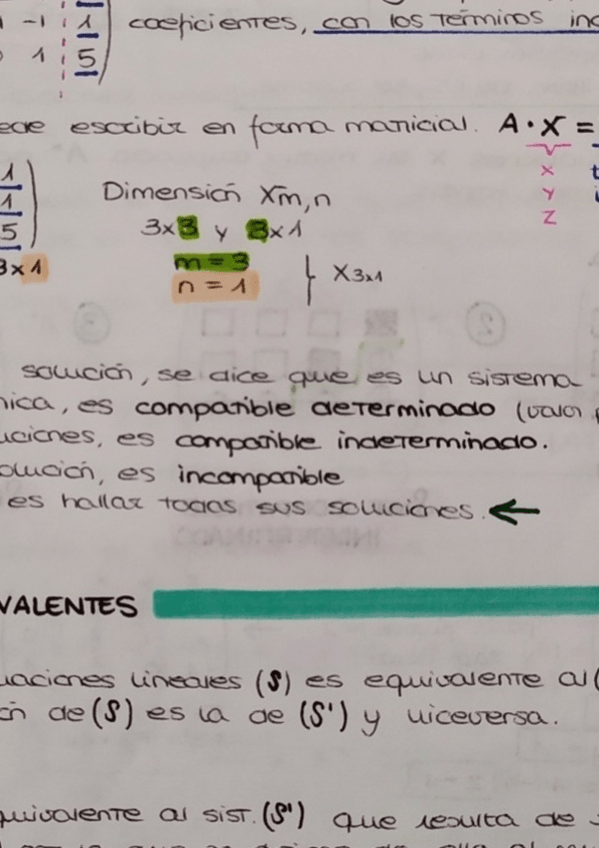 -1 1
coeficientes, con los términos
1 5
escribir en forma matricial. A · X =
1
1
5
3x1
Dimensión Xm,n
3x3 y 3x1
m = 3
n = 1
X3x1
X
Y
Z
solución, se dice que es un sistema
es compatible determinado
es compatible indeterminado.
es incompatible
es hallar todas sus soluciones. ←
VALENTES
lineales (S) es equivalente al
de (S) es la de (S') y viceversa.
al sist. (S') que resulta de